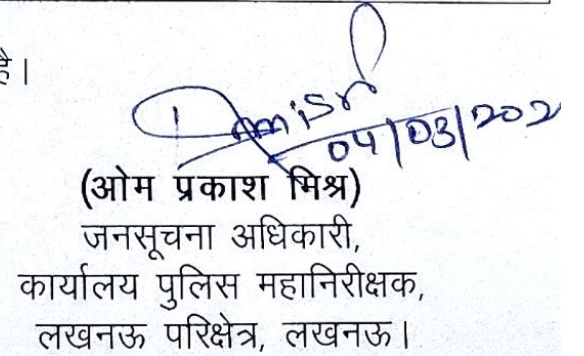 है।
04/03/202
(ओम प्रकाश मिश्र)
जनसूचना अधिकारी,
कार्यालय पुलिस महानिरीक्षक,
लखनऊ परिक्षेत्र, लखनऊ।